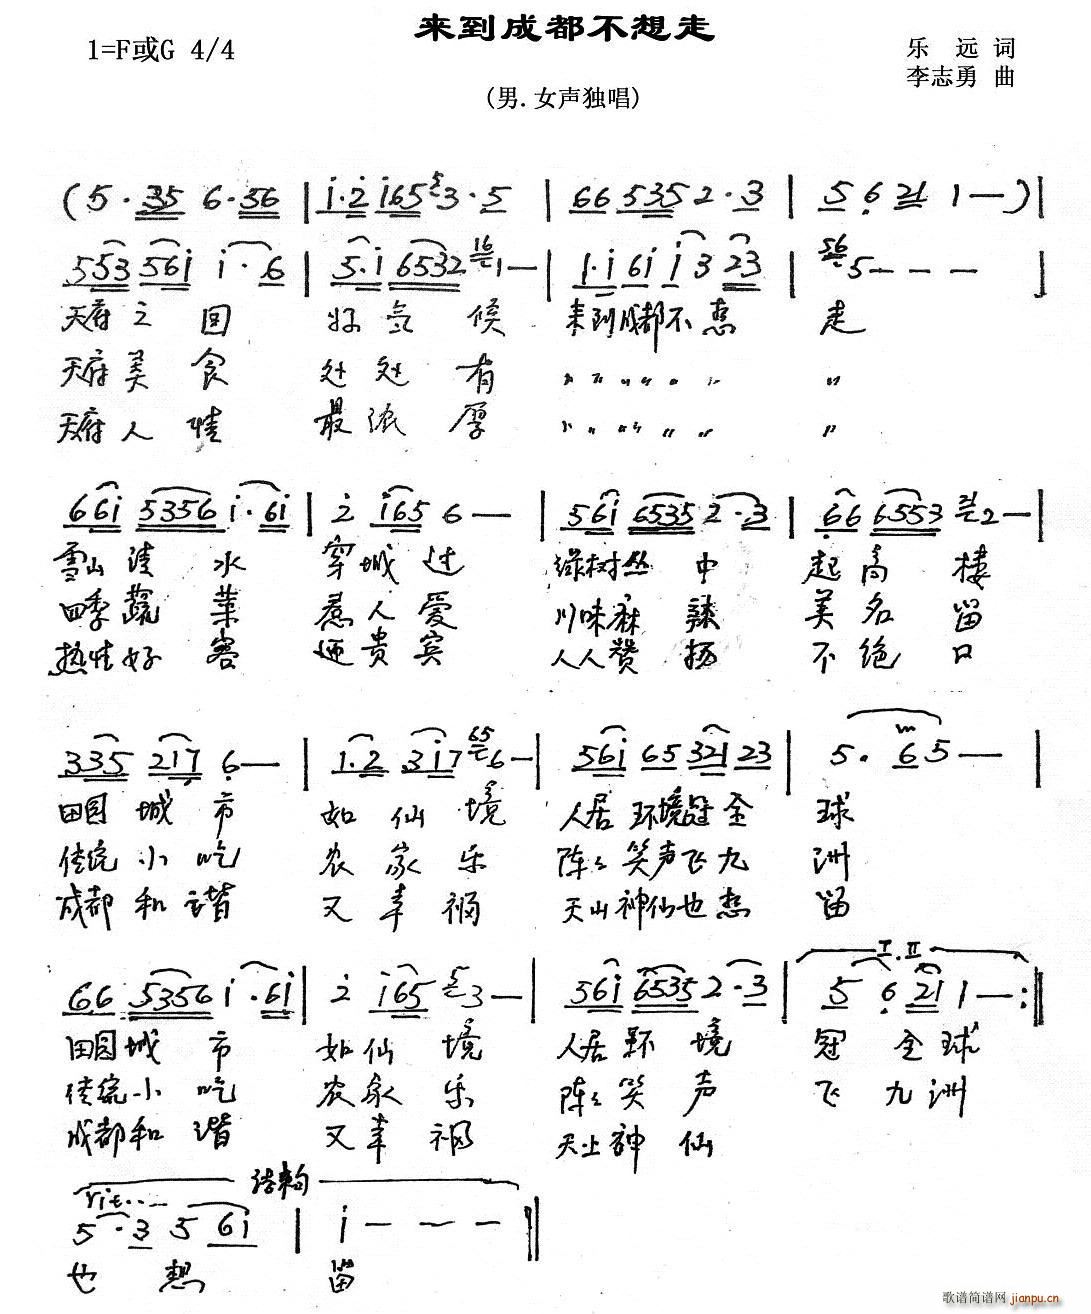 来到成都不想走
1=F或G 4/4
乐 远 词
李志勇 曲
(男.女声独唱)
(5·35 6·56 | i·2 i65 5 3·5 | 66 535 2·3 | 5 6 21 1—)|
553 56i i·6 | 5·i 6532 16 1— | 1·i 6i i3 23 | 56 5———
天府之国 好气候 来到成都不想走
天府美食 处处有 〃〃〃〃〃〃〃
天府人情 最浓厚 〃〃〃〃〃〃〃
66i 5356 i·6i | 2 i65 6— | 56i 6535 2·3 | 66 6553 21 2— |
雪山流水 穿城过 绿树丛中 起高楼
四季蔬菜 惹人爱 川味麻辣 美名留
热情好客 迎贵宾 人人赞扬 不绝口
335 217 6— | 1·2 3i7 65 6— | 56i 65 321 23 | 5·65— |
田园城市 如仙境 人居环境冠全球
传统小吃 农家乐 阵々笑声飞九洲
成都和谐 又幸福 天上神仙也想留
I.II
66 5356 i·6i | 2 i65 5 3— | 56i 6535 2·3 | 5 6 21 1—:‖
田园城市 如仙境 人居环境 冠全球
传统小吃 农家乐 阵々笑声 飞九洲
成都和谐 又幸福 天上神仙
结束句
rit...
5·3 5 6i | i———‖
也想留
歌谱简谱网
jianpu.cn